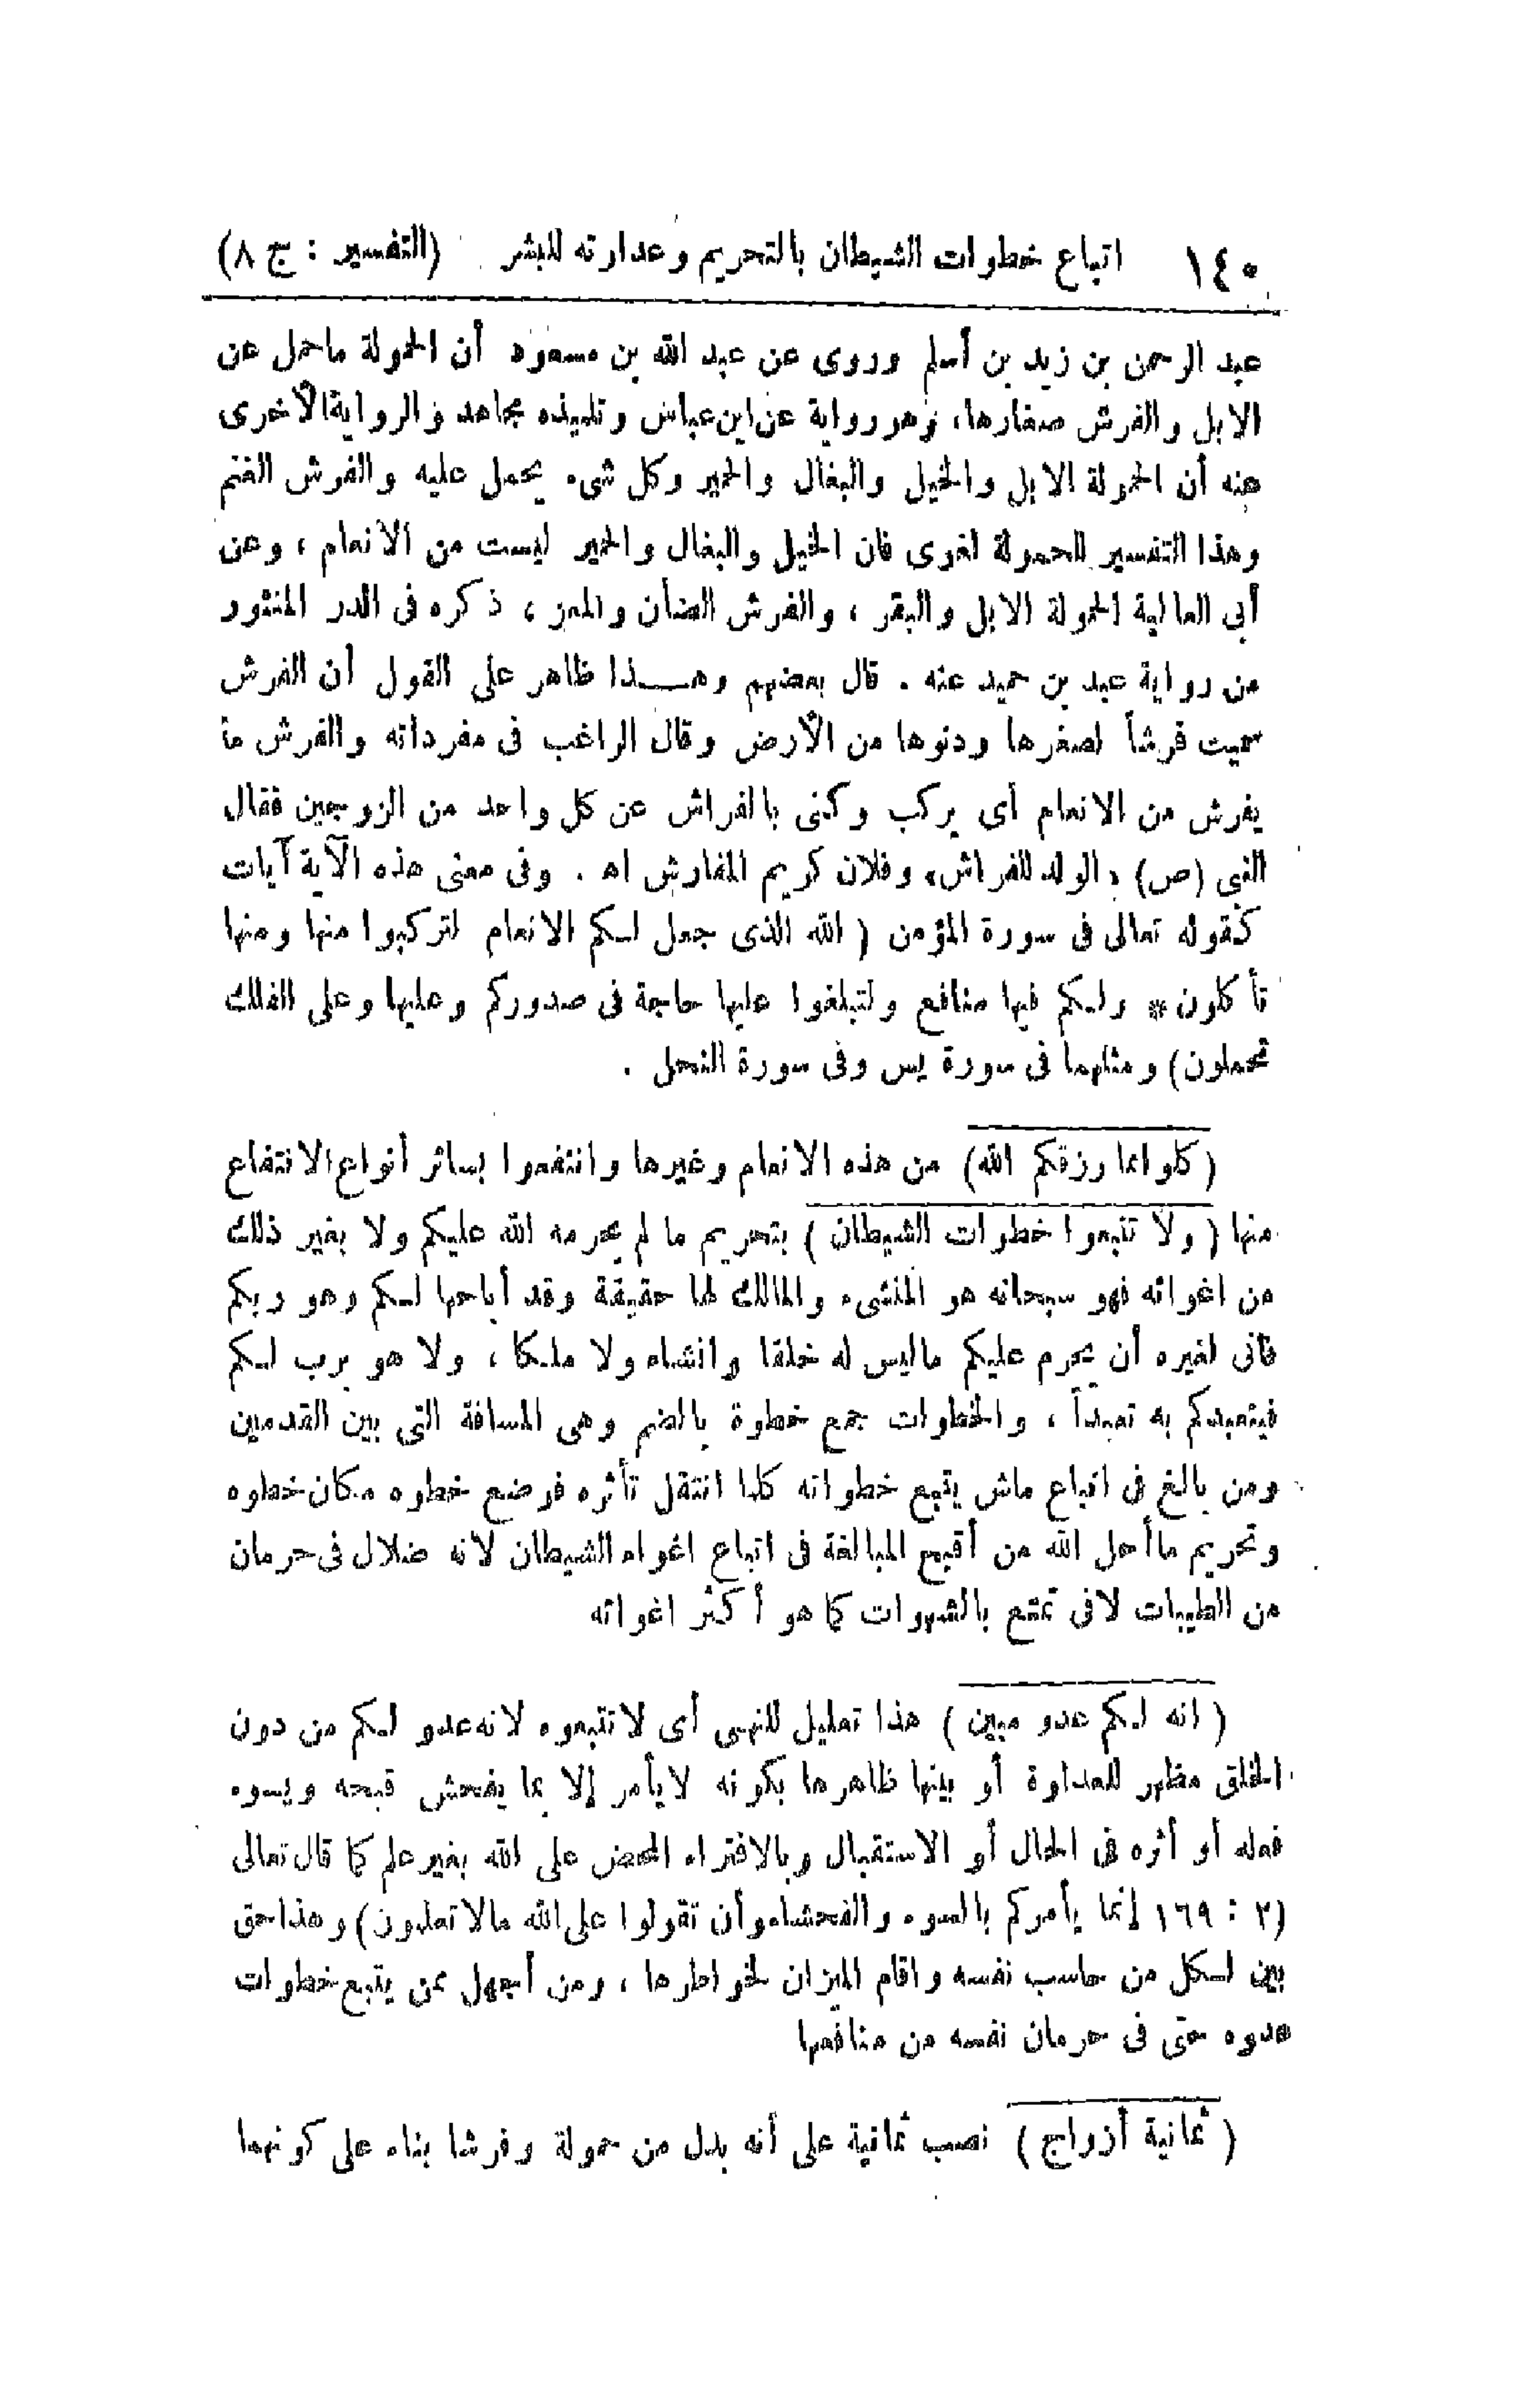 ١٤٠ اتباع خطوات الشيطان بالتحريم وعداوته للبشر (التفسير : ج ٨)
عبد الرحمن بن زيد بن أسلم وروى عن عبد الله بن مسعود أن الحمولة ماحمل عن
الابل والفرش صغارها، وهو رواية عن ابن عباس وتلميذه مجاهد والرواية الأخرى
عنه أن الحمولة الابل والخيل والبغال والحمير وكل شىء يحمل عليه والفرش الغنم
وهذا التفسير للحمولة لغوى فان الخيل والبغال والحمير ليست من الأنعام ، وعن
أبى العالية الحمولة الابل والبقر ، والفرش الضأن والمعز ، ذكره فى الدر المنثور
من رواية عبد بن حميد عنه . قال بعضهم وهـذا ظاهر على القول أن الفرش
سميت فرشاً لصغرها ودنوها من الأرض وقال الراغب فى مفرداته والفرش ما
يفرش من الانعام أى يركب وكنى بالفراش عن كل واحد من الزوجين فقال
النبى (ص) «الولد للفراش» وفلان كريم المفارش اه . وفى معنى هذه الآية آيات
كقوله تعالى فى سورة المؤمن ( الله الذى جعل لـكم الانعام لتركبوا منها ومنها
تأكلون * ولـكم فيها منافع ولتبلغوا عليها حاجة فى صدوركم وعليها وعلى الفلك
تحملون) ومثلهما فى سورة يس وفى سورة النحل .
(كلوا مما رزقكم الله) من هذه الانعام وغيرها وانتفعوا بسائر أنواع الانتفاع
منها ( ولا تتبعوا خطوات الشيطان ) بتحريم ما لم يحرمه الله عليكم ولا بغير ذلك
من اغوائه فهو سبحانه هو المنشىء والمالك لها حقيقة وقد أباحها لـكم وهو ربكم
فانى لغيره أن يحرم عليكم ماليس له خلقا وانشاء ولا ملـكا ، ولا هو برب لـكم
فيتعبدكم به تعبداً ، والخطوات جمع خطوة بالضم وهى المسافة التى بين القدمين
ومن بالغ فى اتباع ماش يتبع خطواته كلما انتقل تأثره فوضع خطوه مكان خطوه
وتحريم ماأحل الله من أقبح المبالغة فى اتباع اغواء الشيطان لانه ضلال فى حرمان
من الطيبات لافى تمتع بالشهوات كما هو أكثر اغوائه
( انه لـكم عدو مبين ) هذا تعليل للنهى أى لاتتبعوه لانه عدو لـكم من دون
الخلق مظهر للعداوة أو بينها ظاهرها بكونه لايأمر إلا بما يفحش قبحه ويسوء
فعله أو أثره فى الحال أو الاستقبال وبالافتراء المحض على الله بغير علم كما قال تعالى
(٢ : ١٦٩ إنما يأمركم بالسوء والفحشاء وأن تقولوا على الله مالاتعلمون) وهذا حق
بين لـكل من حاسب نفسه واقام الميزان لخواطرها ، ومن أجهل ممن يتبع خطوات
عدوه حتى فى حرمان نفسه من منافعها
( ثمانية أزواج ) نصب ثمانية على أنه بدل من حمولة وفرشا بناء على كونهما